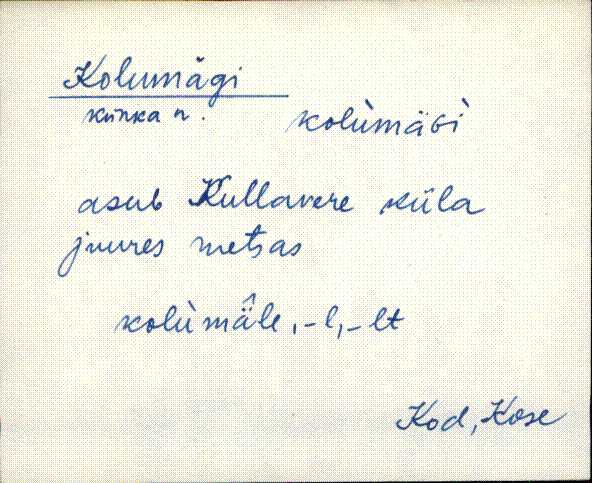 Kolumägi
künka n.
kolùmäGì
asub Kullavere küla
juures metsas
kolùmä̂le, -l, -lt
Kod, Kose